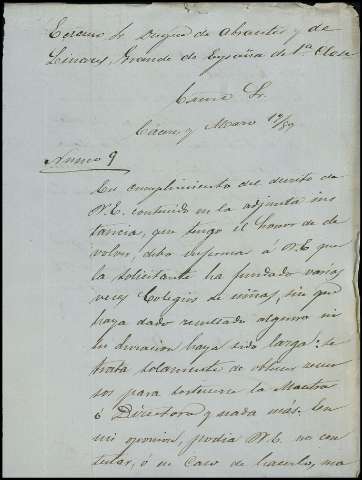 Excmo Sr Duque de Abrantes y de
Linares, Grande de España de 1ª Clase
Excmo Sr.
Cáceres y Marzo 19/59
Anexo 9
En cumplimiento del decreto de
V.E. contenido en la adjunta ins
tancia, que tengo el honor de de
volver, debo informar á V.E que
la solicitante ha fundado varias
veces Colegios de niñas, sin que
haya dado resultado alguno ni
su duracion haya sido larga: se
trata solamente de obtener recur
sos para sostenerse la Maestra
ó Directora y nada más. En
mi opinion, podia V.E. no con
testar, ó en caso de hacerlo, ma